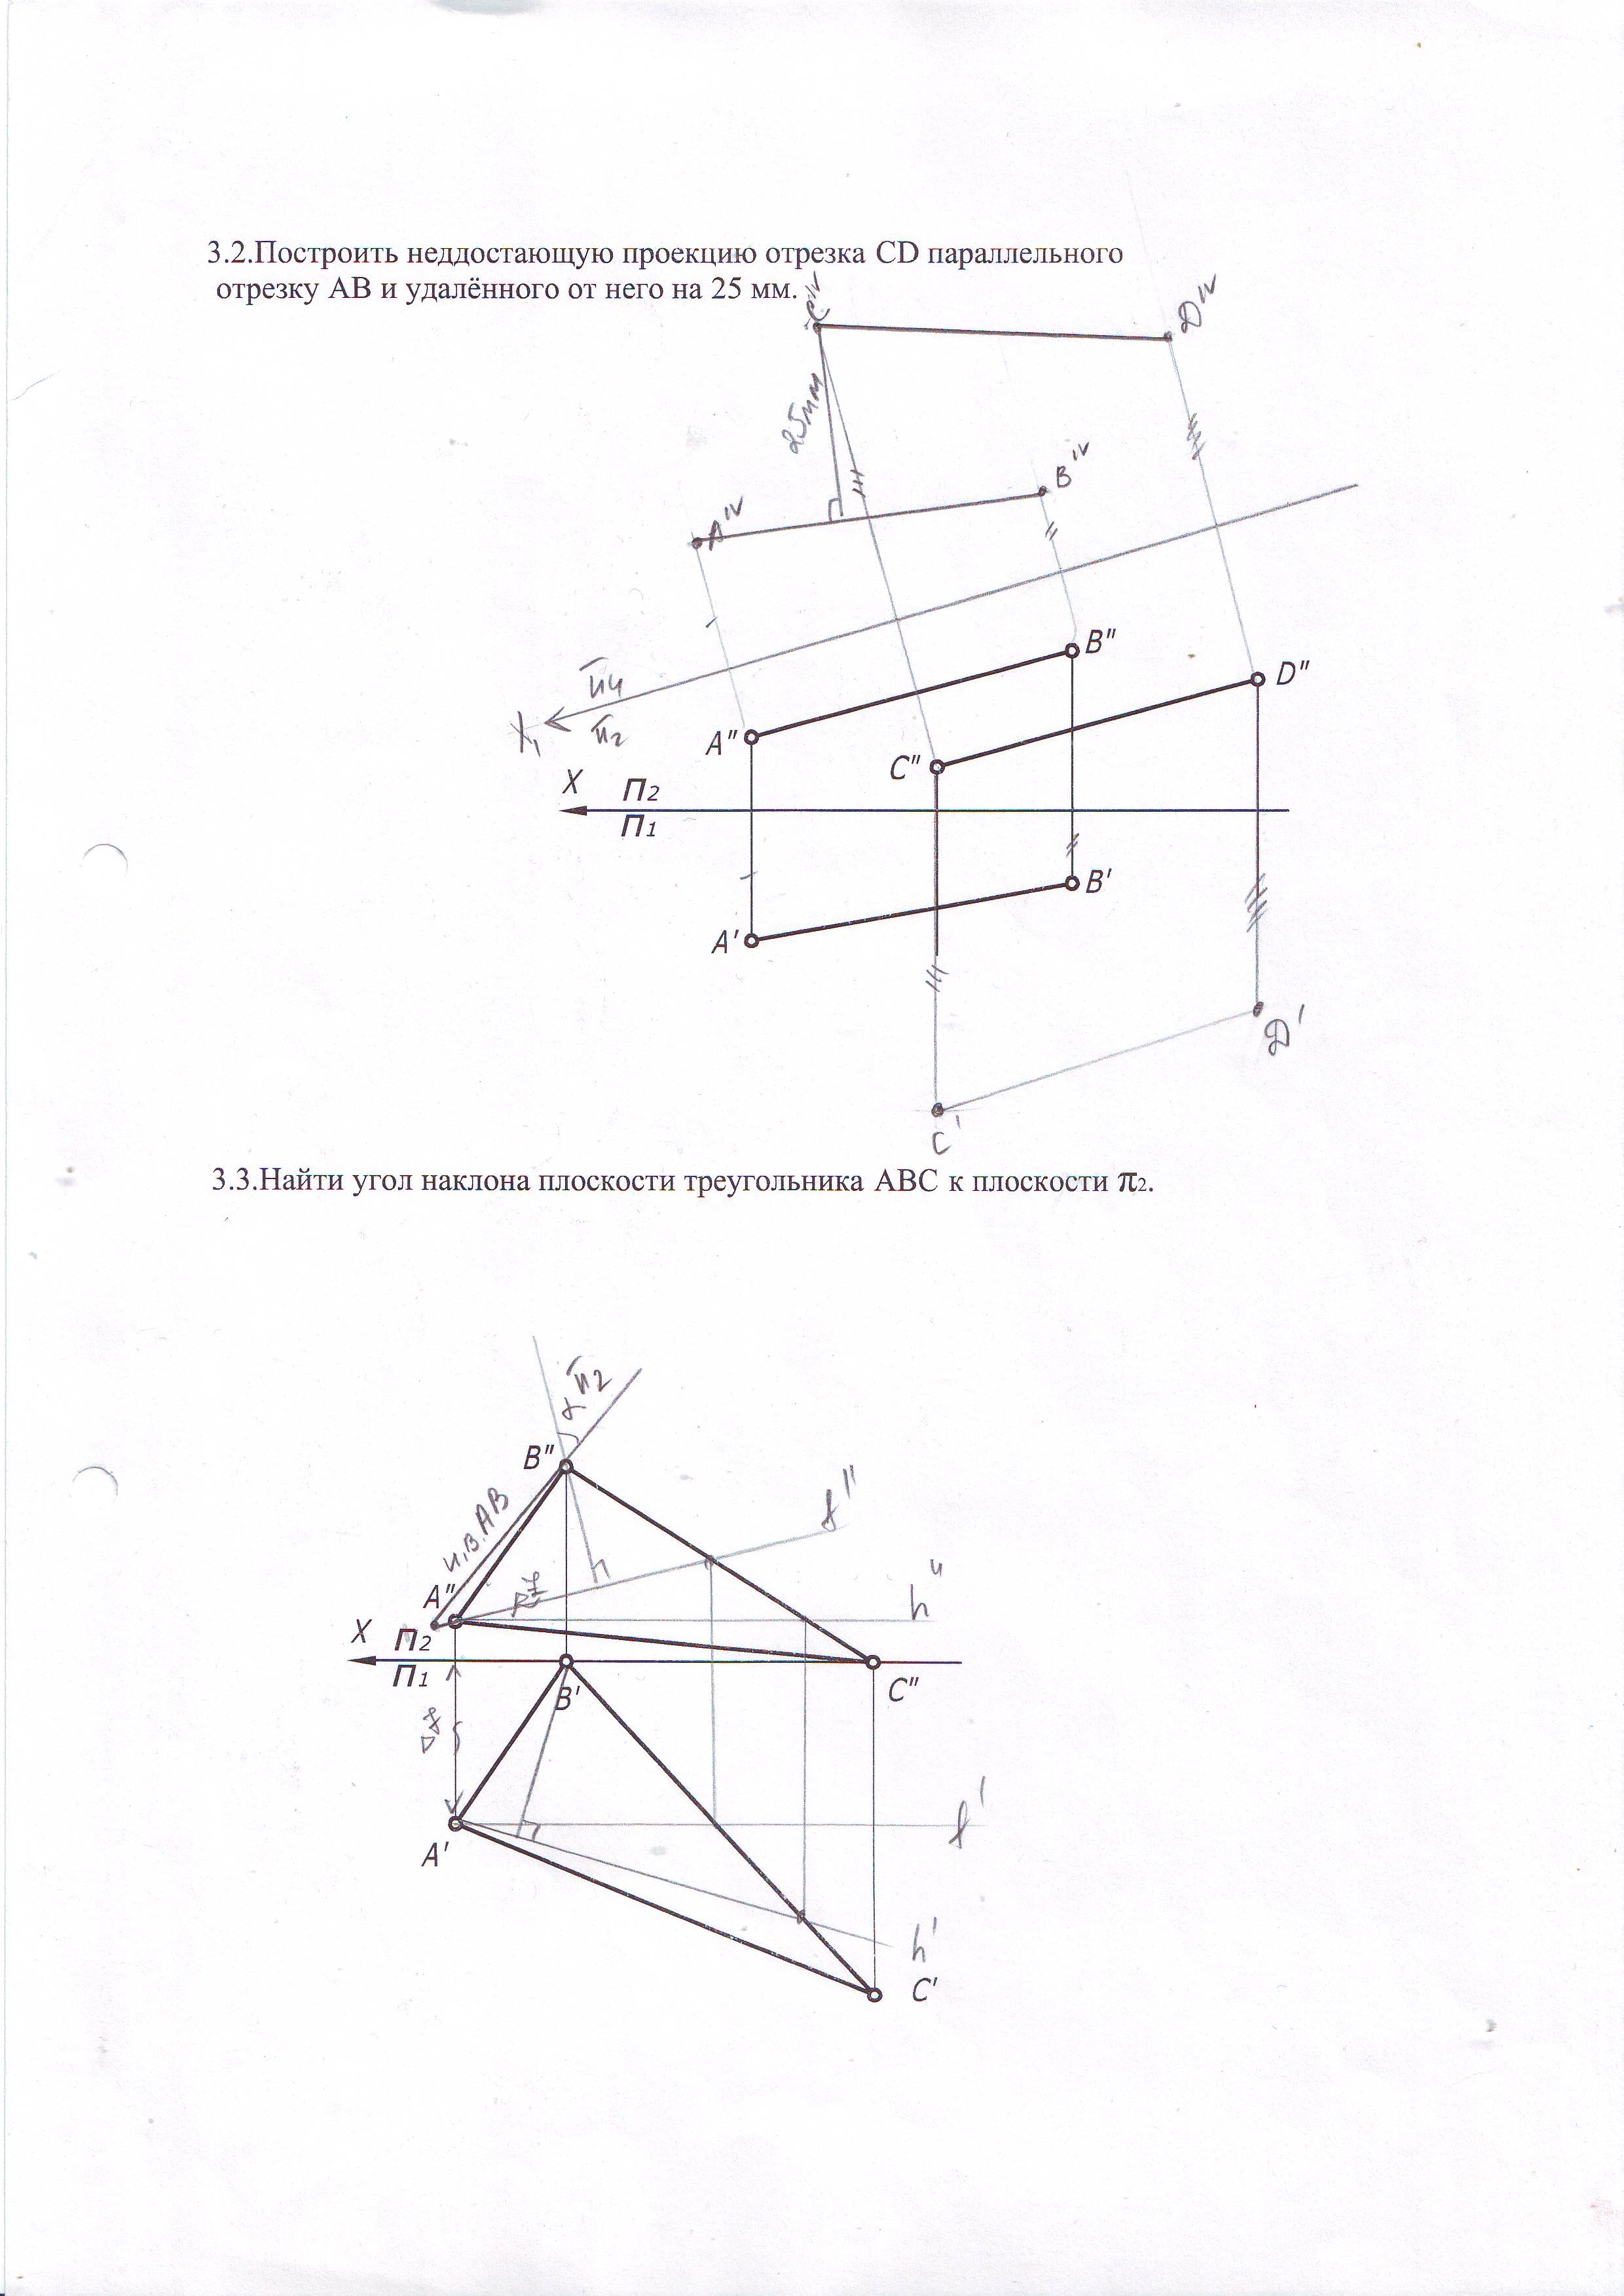 3.2.Построить неддостающую проекцию отрезка CD параллельного
отрезку AB и удалённого от него на 25 мм.
C^IV
D^IV
25мм
B^IV
A^IV
π4
π2
X1
B"
D"
A"
C"
X П2
П1
B'
A'
D'
C'
3.3.Найти угол наклона плоскости треугольника ABC к плоскости π2.
α π2
B"
f"
н.в.AB
h"
A"
X П2
П1
B'
C"
f'
A'
h'
C'